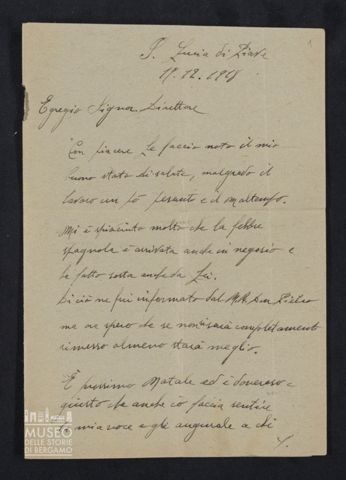 S. Lucia di Piave
11.12.1918
1
Egregio Signor Direttore
Con piacere Le faccio noto il mio
buono stato di salute, malgrado il
lavoro un pò pesante e il maltempo.
Mi è spiaciuto molto che la febbre
spagnola è arrivata anche in negozio e
ha fatto sosta anche da Lei.
Di ciò ne fui informato dal
ma ne spero che se non sarà completamente
rimesso almeno starà meglio.
È prossimo Natale ed è doveroso e
giusto che anche io faccia sentire
la mia voce e gli augurale a chi
MUSEO
DELLE STORIE
DI BERGAMO